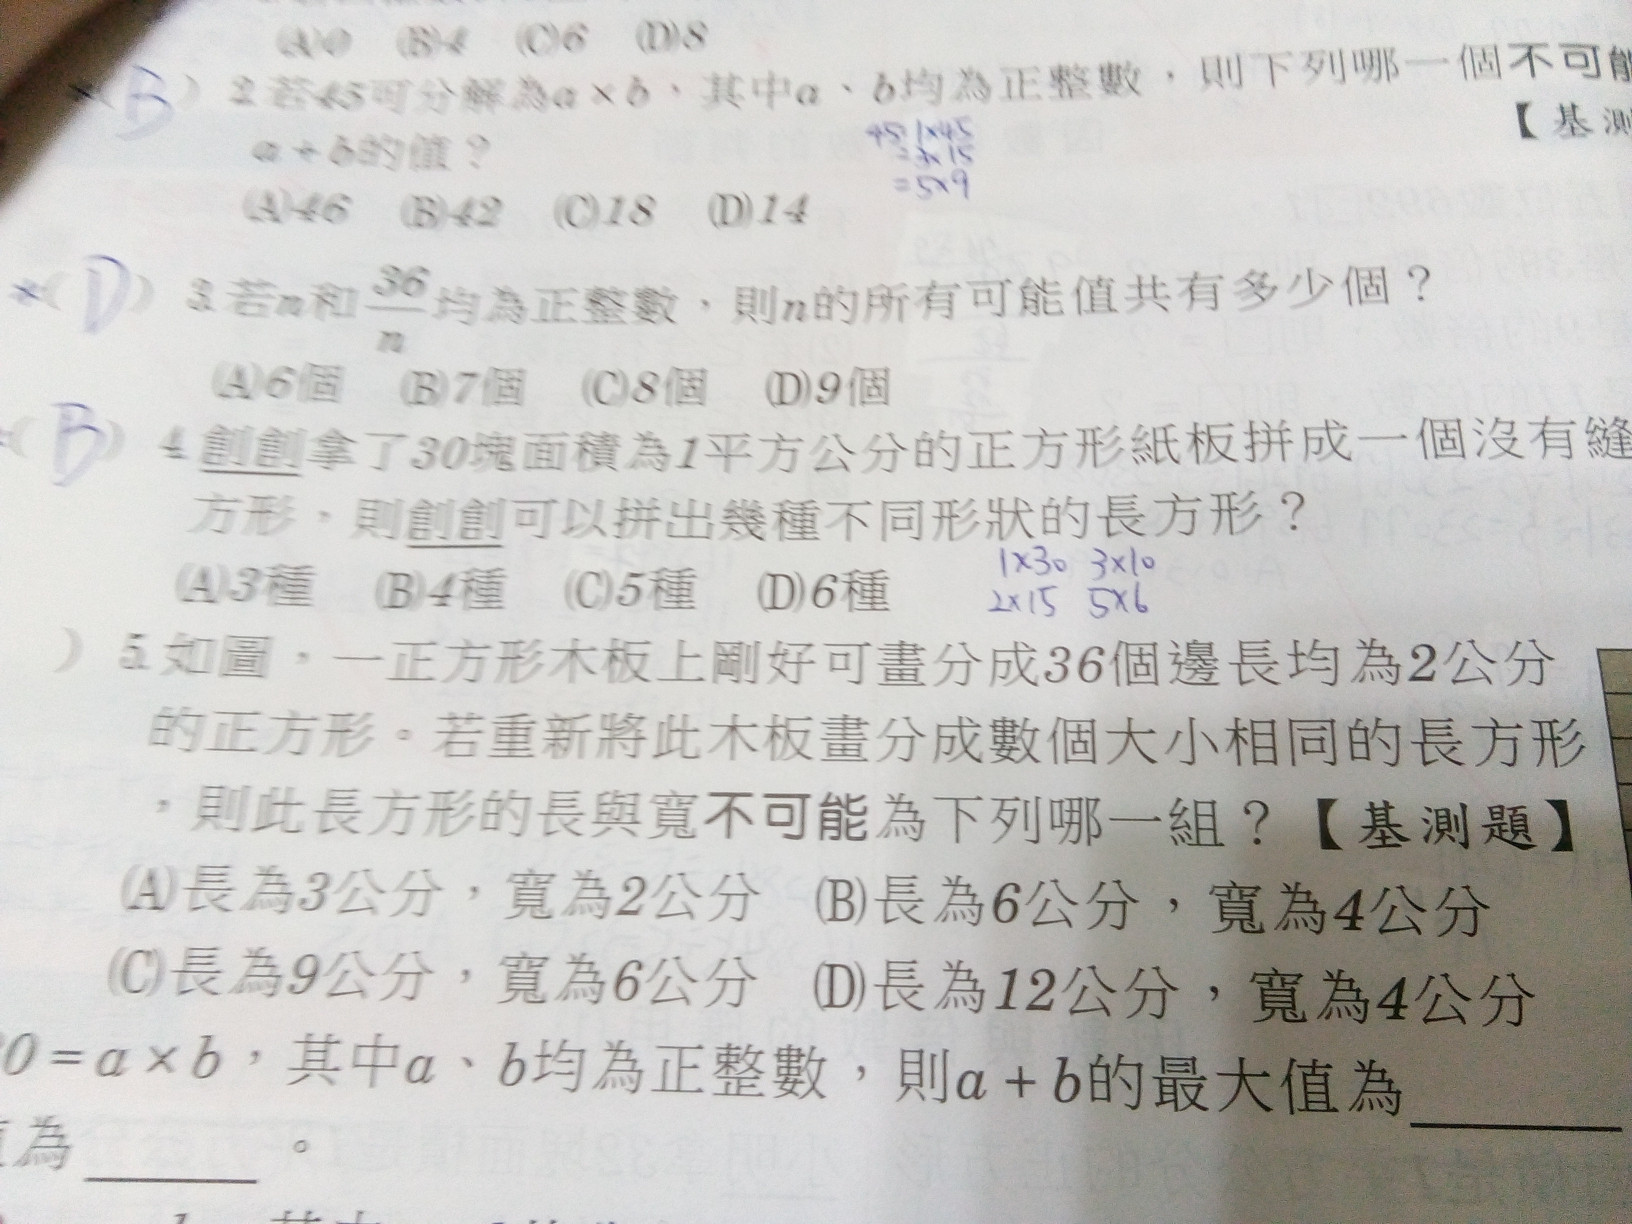 (A)0 (B)4 (C)6 (D)8
*(B) 2.若45可分解為a×b，其中a、b均為正整數，則下列哪一個不可能
a+b的值？
【基測
45=1×45
=3×15
=5×9
(A)46 (B)42 (C)18 (D)14
*(D) 3.若n和36/n均為正整數，則n的所有可能值共有多少個？
(A)6個 (B)7個 (C)8個 (D)9個
(B) 4.創創拿了30塊面積為1平方公分的正方形紙板拼成一個沒有縫
方形，則創創可以拼出幾種不同形狀的長方形？
(A)3種 (B)4種 (C)5種 (D)6種
1×30 3×10
2×15 5×6
) 5.如圖，一正方形木板上剛好可畫分成36個邊長均為2公分
的正方形。若重新將此木板畫分成數個大小相同的長方形
，則此長方形的長與寬不可能為下列哪一組？【基測題】
(A)長為3公分，寬為2公分 (B)長為6公分，寬為4公分
(C)長為9公分，寬為6公分 (D)長為12公分，寬為4公分
0=a×b，其中a、b均為正整數，則a+b的最大值為
為 。